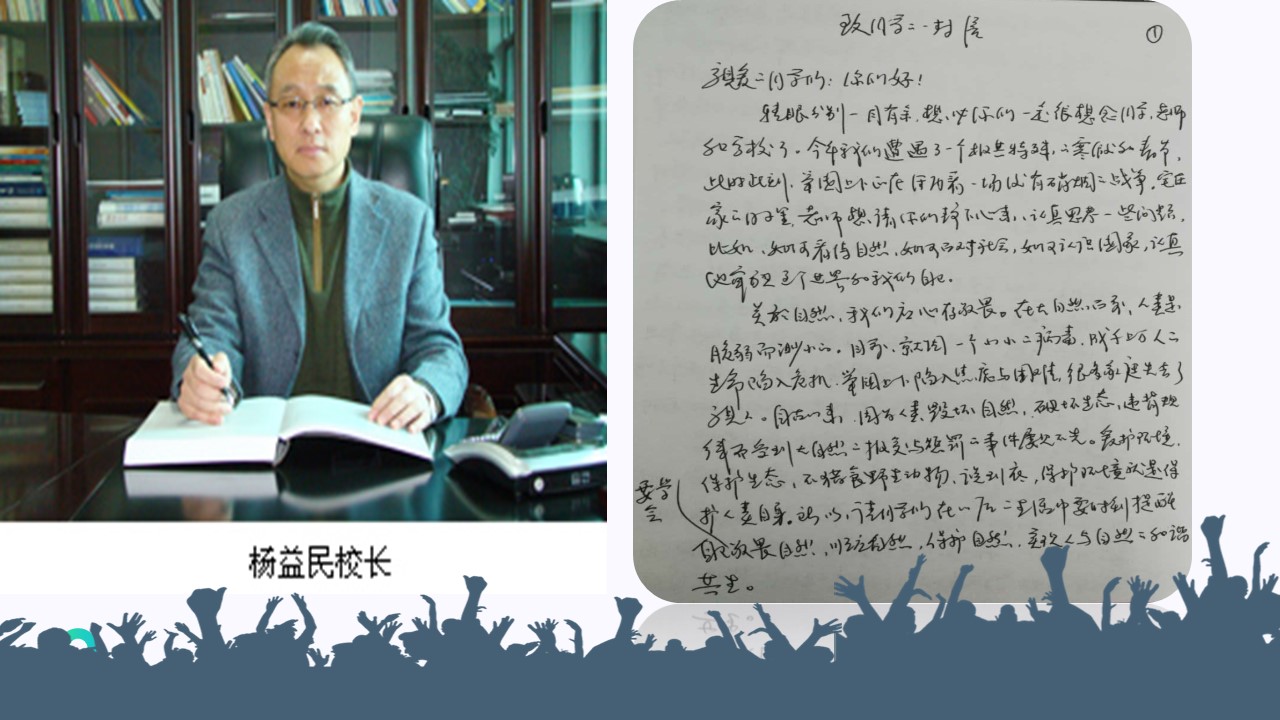 杨益民校长
致同学的一封信
①
亲爱的同学们：你们好！
转眼分别一月有余，想必你们一定很想念同学、老师
和学校了。今年我们遭遇了一个极其特殊的寒假和春节，
此时此刻，举国上下正在面临一场没有硝烟的战争。宅在
家的日子里，老师想请你们静下心来，认真思考一些问题，
比如，如何看待自然，如何面对社会，如何认识国家，认真
地审视这个世界和我们自己。
关于自然，我们应心存敬畏。在大自然面前，人类是
脆弱而渺小的。目前，就因一个小小的病毒，成千上万人的
生命陷入危机，举国上下陷入焦虑与困境，很多家庭失去了
亲人。自古以来，因为人类毁坏自然，破坏生态，违背规
律而受到大自然的报复与惩罚的事件屡见不鲜。爱护环境，
保护生态，不猎食野生动物，说到底，保护环境就是保
护人类自身。所以，请同学们在以后的生活中要时刻提醒
要学会
自己敬畏自然，顺应自然，保护自然，实现人与自然的和谐
共生。